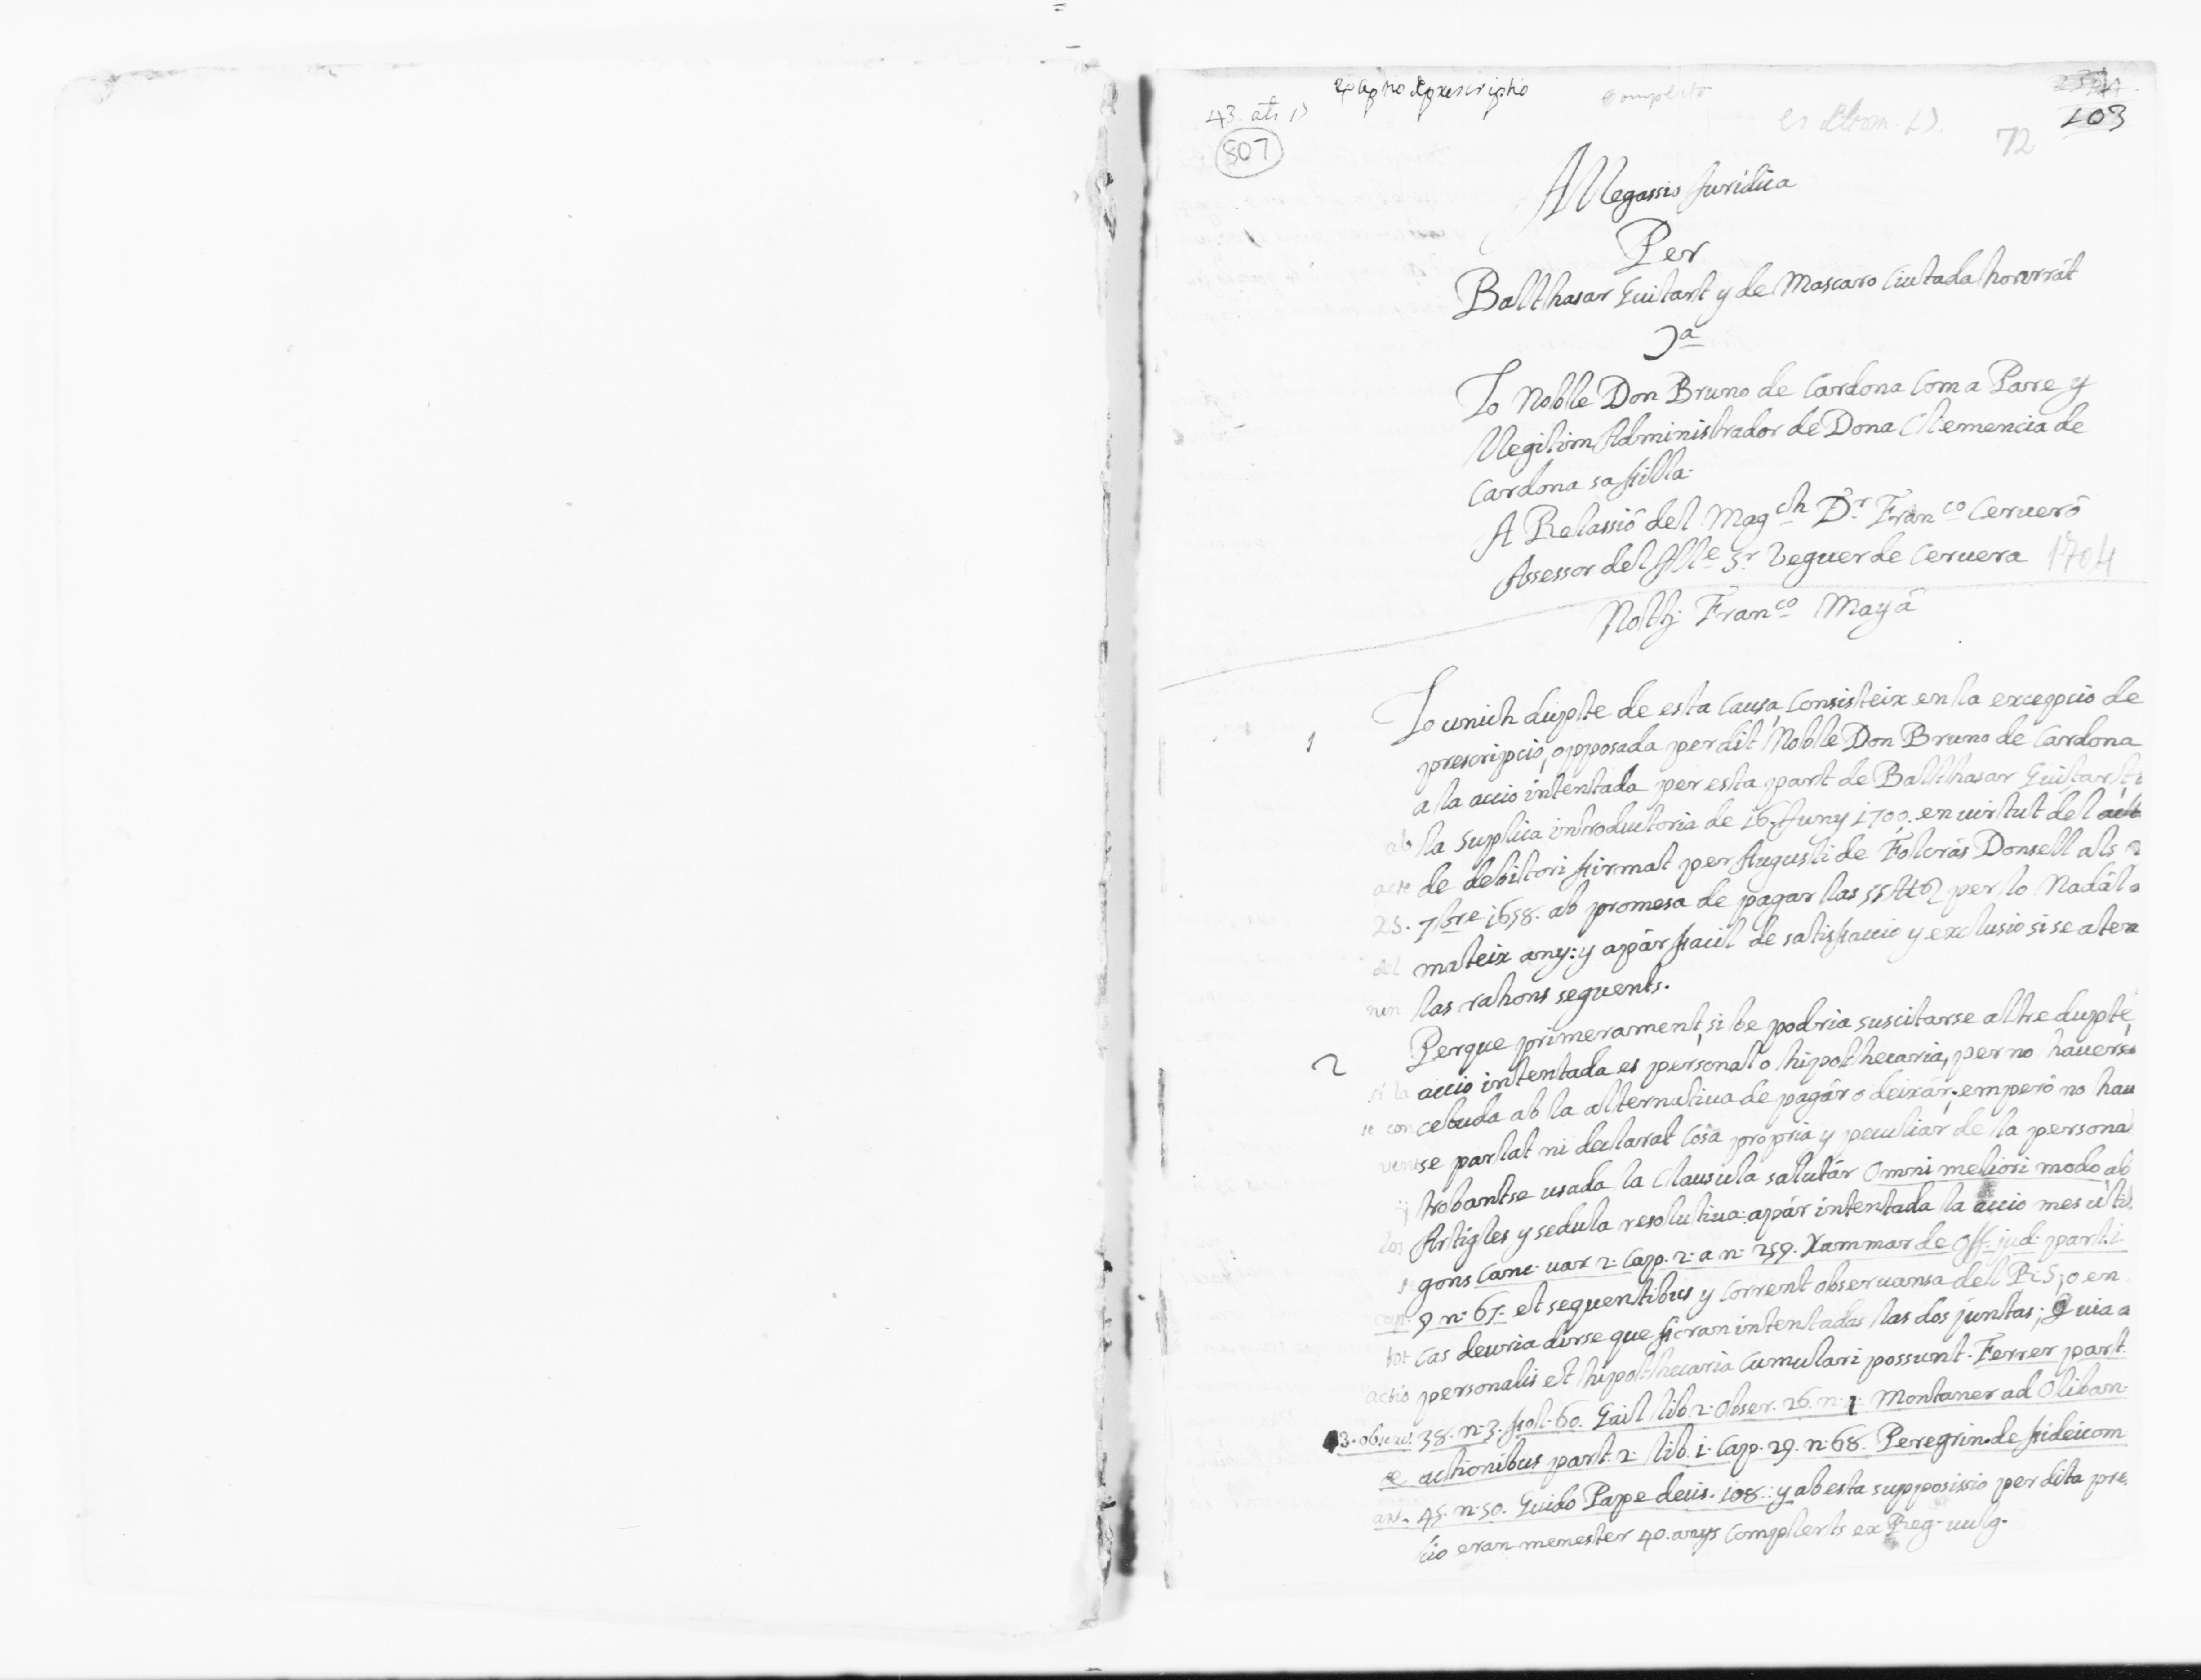 43. als 13
807
complete
72
103
Allegassio Juridica
Per
Balthasar Guitart y de Mascaro Ciutada honrrat
Ja
Lo Noble Don Bruno de Cardona Com a Pare y
Llegitim Administrador de Dona Clemencia de
Cardona sa filla.
A Relassió del Magch Dr. Franco Cerveró
Assessor del Ille Sr Veguer de Cervera 1704
Notj Franco Mayá
1 Lo unich dupte de esta causa, Consisteix en la excepció de
prescripció, opposada per dit Noble Don Bruno de Cardona
a la accio intentada per esta part de Balthasar Guitart,
ab la Supplica introductoria de 16. Juny 1700. en virtut del
acte de debitori firmat per Augusti de Folcrás Donsell als
25. 7bre 1658. ab promesa de pagar las 55 per lo Nadál
del mateix any: y apár facil de satisfaccio y exclusio si se aten
nen las rahons seguents.
2 Perque primerament, si be podria suscitarse altre dupte,
si la accio intentada es personal o hipothecaria, per no haverse
se concebuda ab la alternativa de pagár o deixár; emperó no hau
ventse parlat ni declarat Cosa propria y peculiár de la persona
y trobantse usada la Clausula salutár Omni meliori modo, ab
los Artigles y sedula resolutiva: apár intentada la accio mes util.
segons Canc. var 2. Cap. 2. a n. 259. Xammar de Off. jud. part. 1.
cap. 9 n. 67. et sequentibus y Corrent observansa del R. S, o en
tot cas deuria dirse que foran intentadas las dos juntas; Quia a
actio personalis et hipothecaria Cumulari possunt. Ferrer part.
3. observ. 38. n. 3. fol. 60. Gail lib 2. Obser. 26. n. 1 Montaner ad Oliban.
de actionibus part. 2. lib. 1. Cap. 29. n. 68. Peregrin. de fideicom
art. 45. n. 50. Guido Pape decis. 108. y ab esta supposissio per dita pre,
cio eran menester 40. anys Complerts ex Reg. vulg.